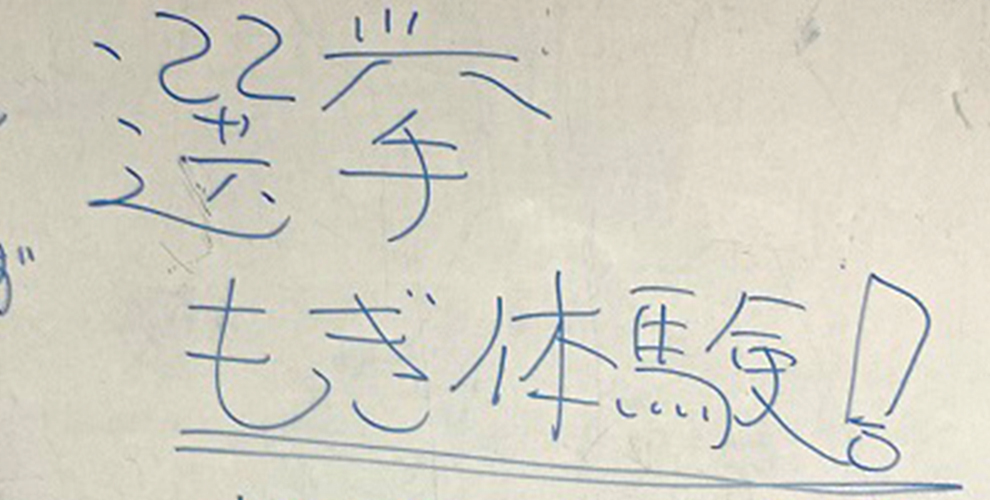 選挙
もぎ体験!